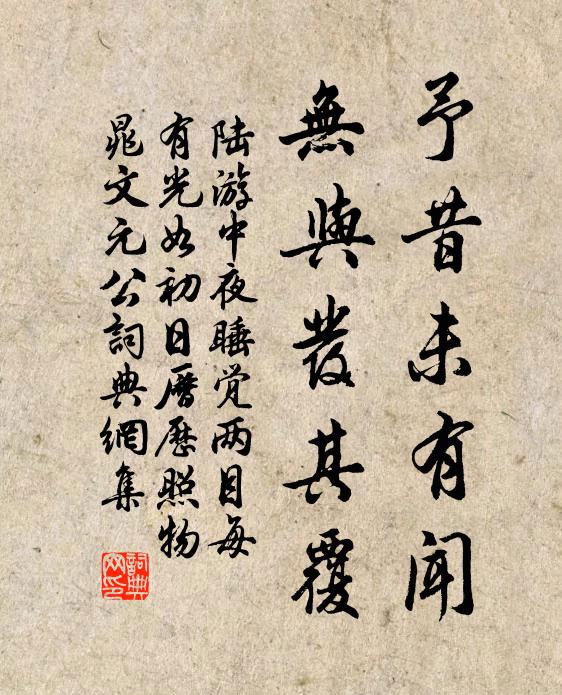 予昔未有聞
無與發其覆
陆游中夜睡觉两目每
有光如初日曆歷照物
晁文元公詞典網集
詞典
网印